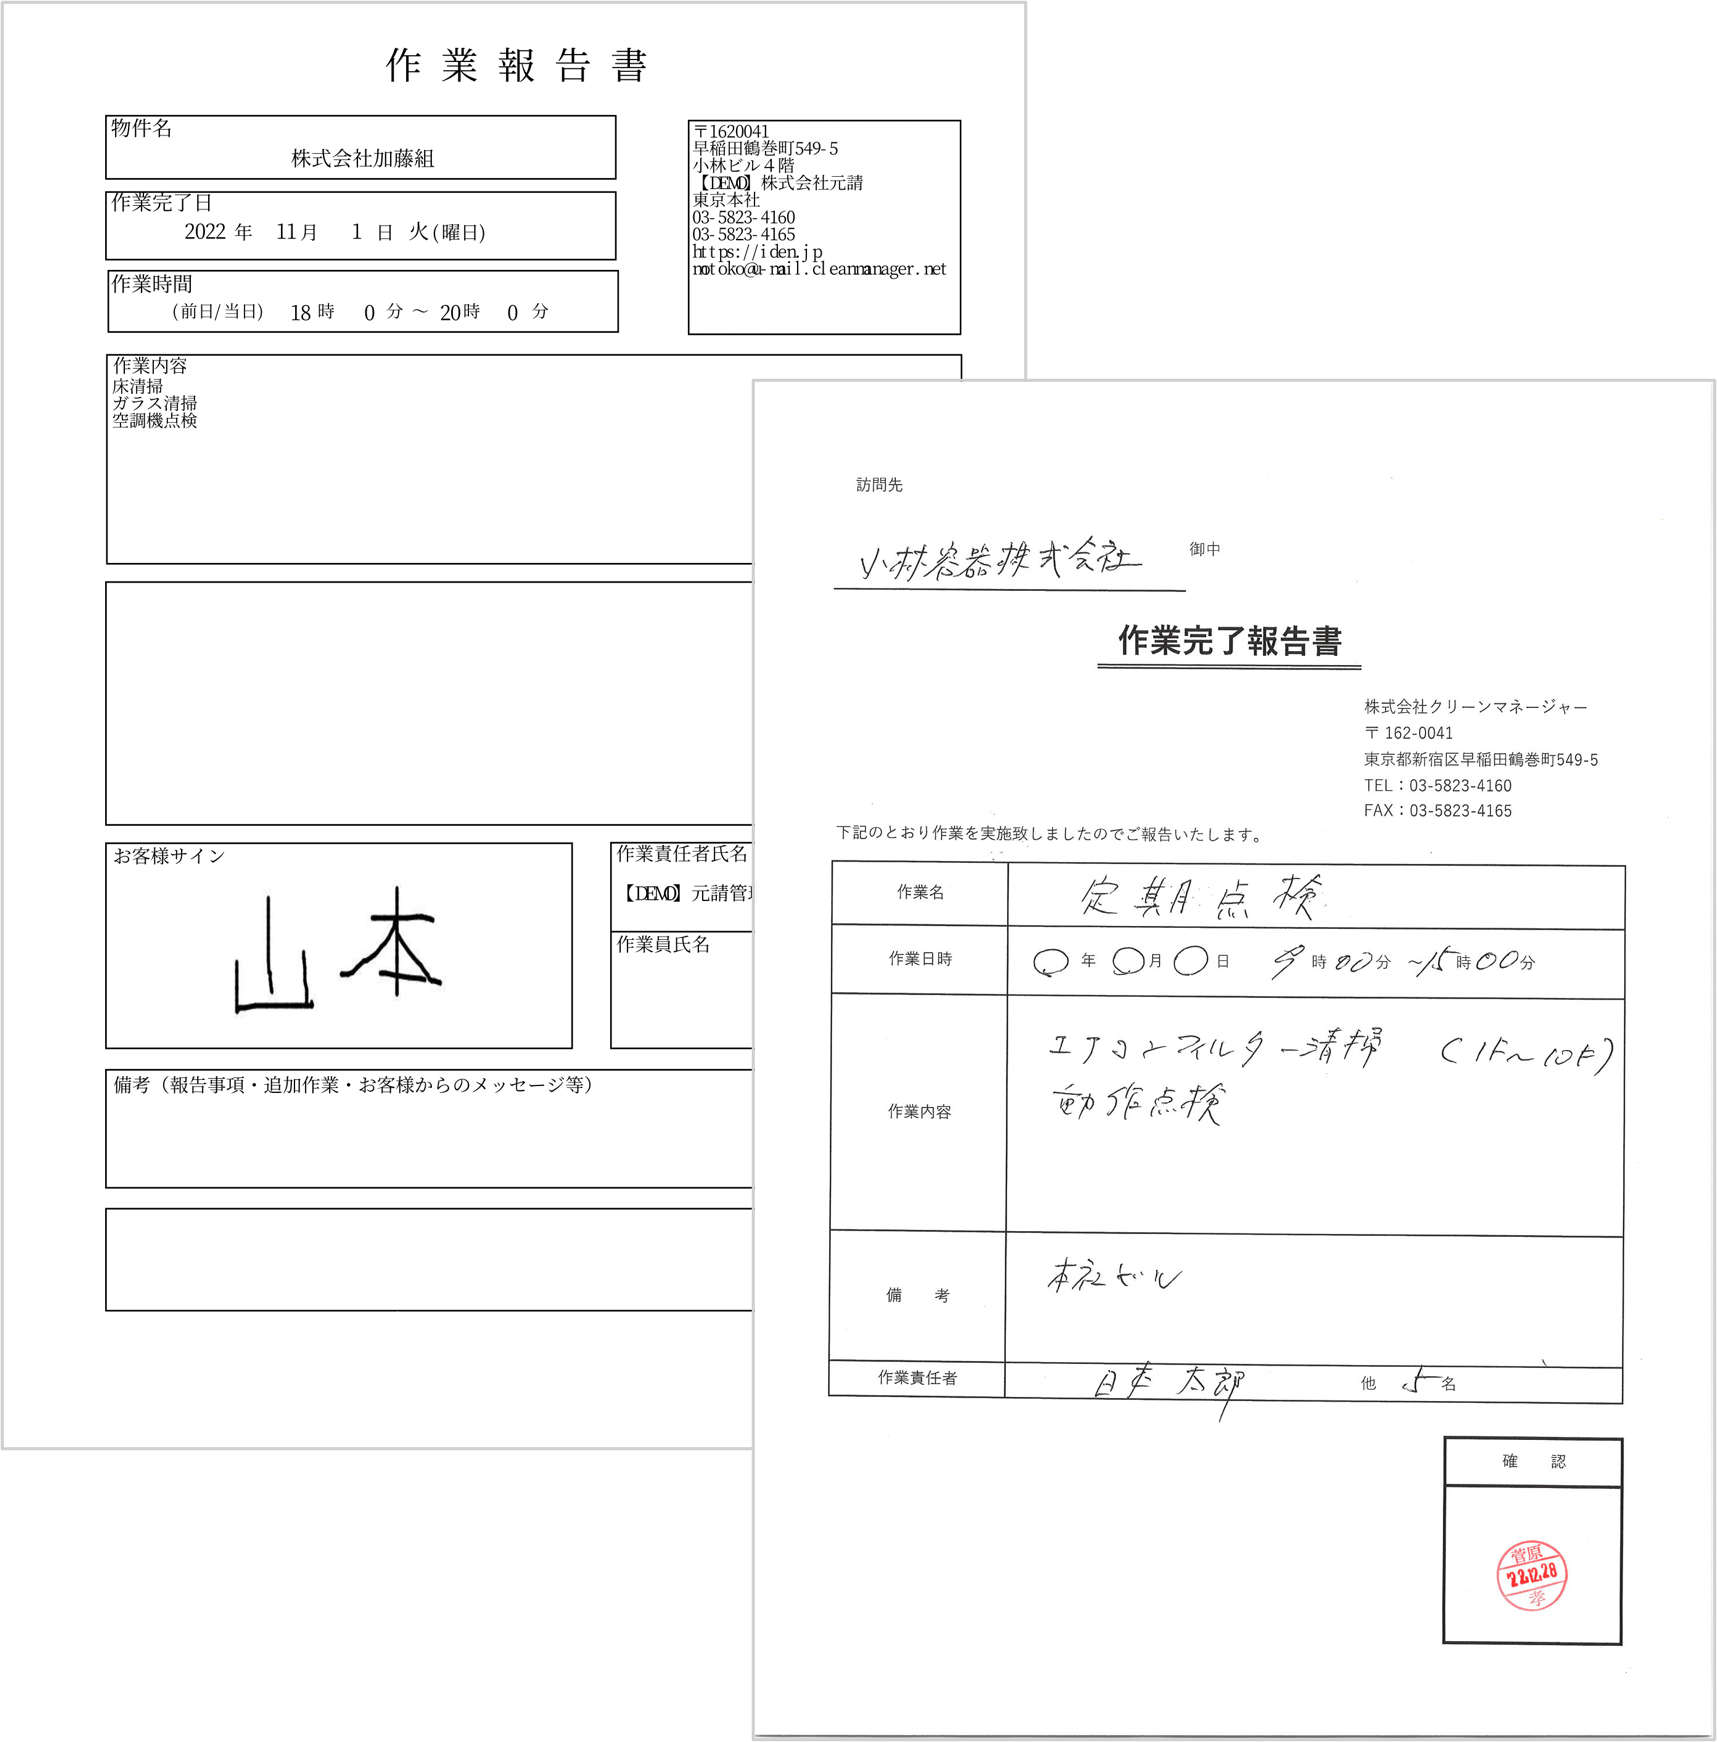 作業報告書
物件名
株式会社加藤組
作業完了日
2022 年 11月 1 日 火(曜日)
作業時間
(前日/当日) 18 時 0 分 ～ 20時 0 分
〒1620041
早稲田鶴巻町549-5
小林ビル４階
【DEMO】株式会社元請
東京本社
03-5823-4160
03-5823-4165
https://iden.jp
motoko@u-mail.cleanmanager.net
作業内容
床清掃
ガラス清掃
空調機点検
お客様サイン
山本
作業責任者氏名
【DEMO】元請管
作業員氏名
備考（報告事項・追加作業・お客様からのメッセージ等）
訪問先
小林容器株式会社 御中
作業完了報告書
株式会社クリーンマネージャー
〒 162-0041
東京都新宿区早稲田鶴巻町549-5
TEL：03-5823-4160
FAX：03-5823-4165
下記のとおり作業を実施致しましたのでご報告いたします。
作業名 定期点検
作業日時 〇年 〇月 〇日 9時00分 ～15時00分
作業内容
エアコンフィルター清掃 (1F～10F)
動作点検
備 考 本社ビル
作業責任者 日本 太郎 他 5 名
確 認
菅原
'22.12.28
孝